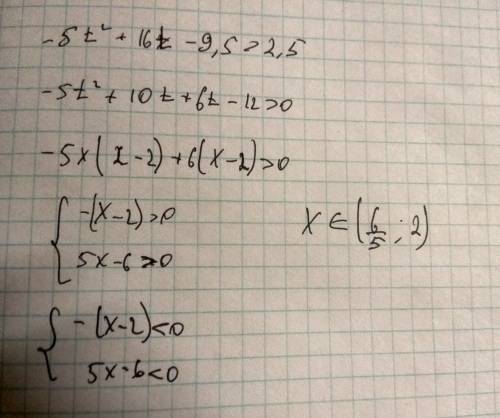 -5t² + 16t - 9,5 > 2,5
-5t² + 10t + 6t - 12 > 0
-5x(x-2) + 6(x-2) > 0
{ -(x-2) > 0
5x-6 > 0
x ∈ (6/5 ; 2)
{ -(x-2) < 0
5x-6 < 0